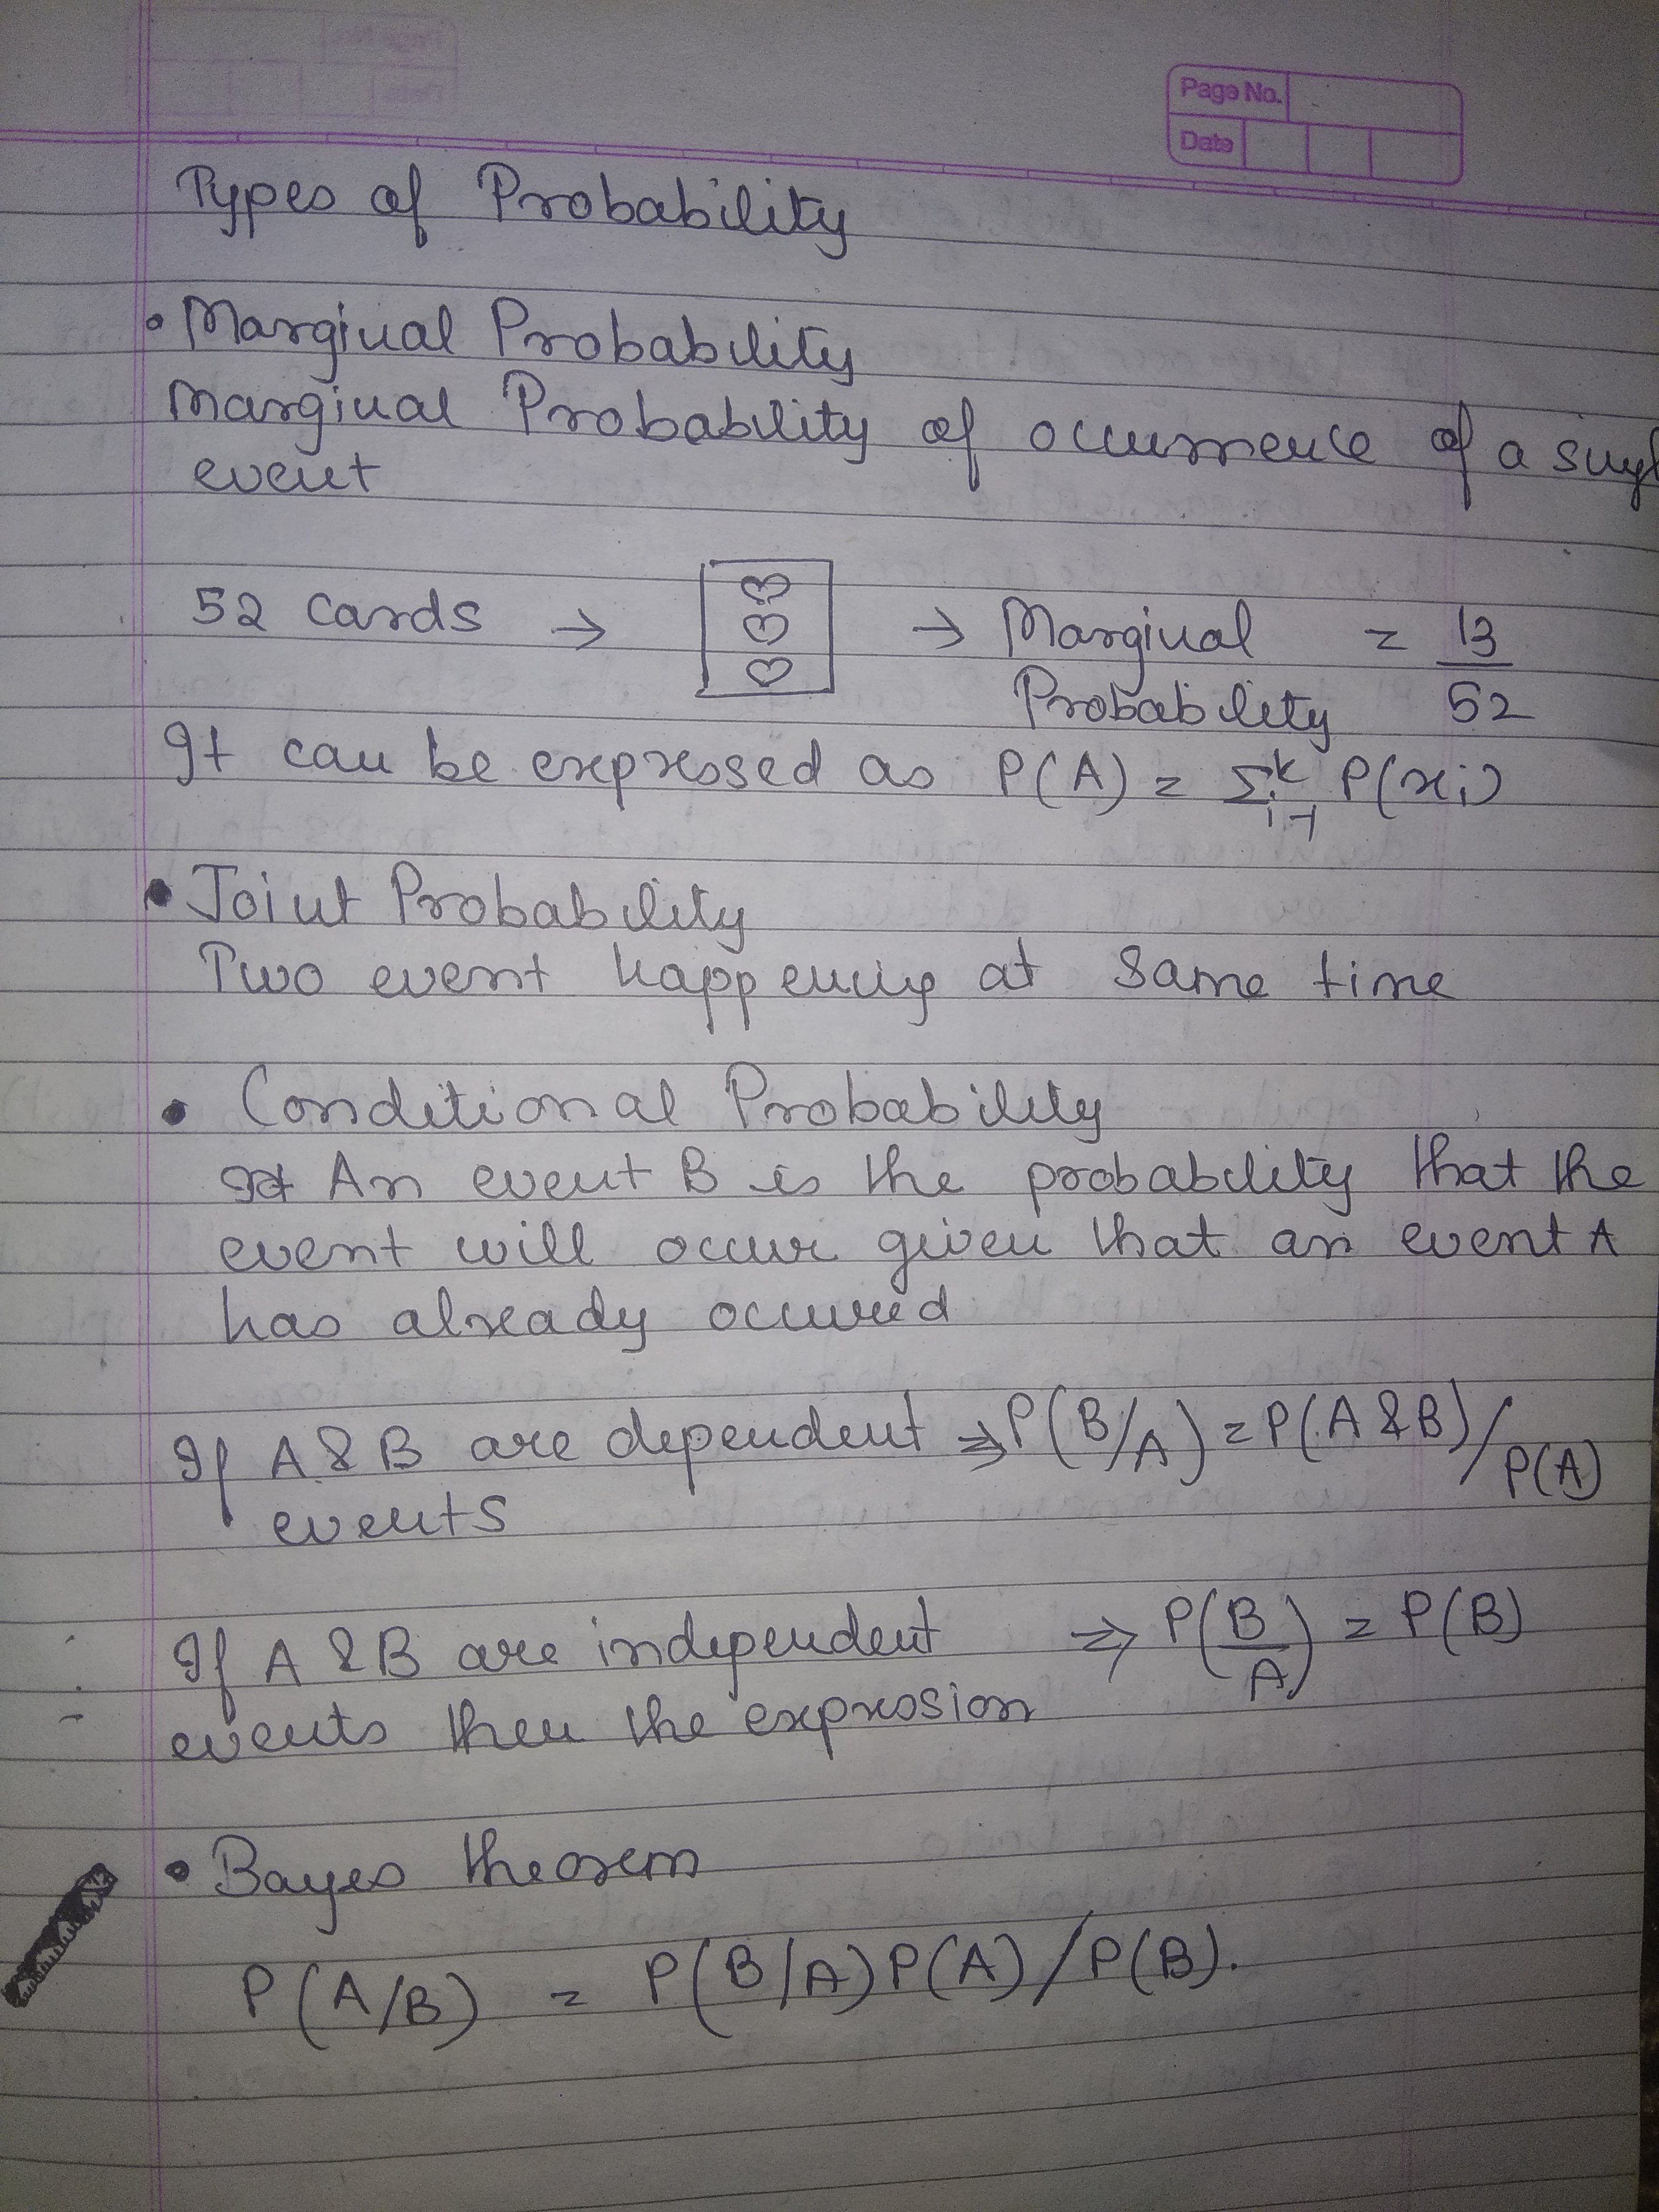 Page No.
Date
Types of Probability
• Marginal Probability
Marginal Probability of ocurrence of a
event
52 Cards → → Marginal = 13
Probability 52
It can be expressed as P(A) = Σᵏᵢ₌₁ P(xi)
• Joint Probability
Two event happening at Same time
• Conditional Probability
An event B is the probability that the
event will occur given that an event A
has already occured
If A & B are dependent ⇒ P(B/A) = P(A & B)/P(A)
events
If A & B are independent ⇒ P(B/A) = P(B)
events then the expression
• Bayes theorem
P(A/B) = P(B/A)P(A)/P(B).